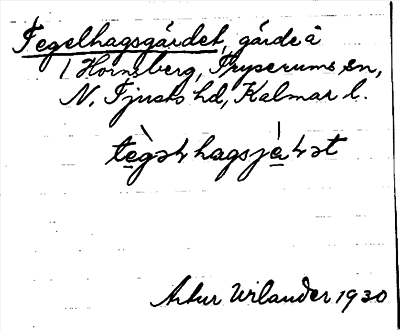 Tegelhagsgärdet, gärde å
1 Hornsberg, Tryserums sn,
N. Tjusts hd, Kalmar l.
tègəɫhagsjàɫət
Artur Wilander 1930